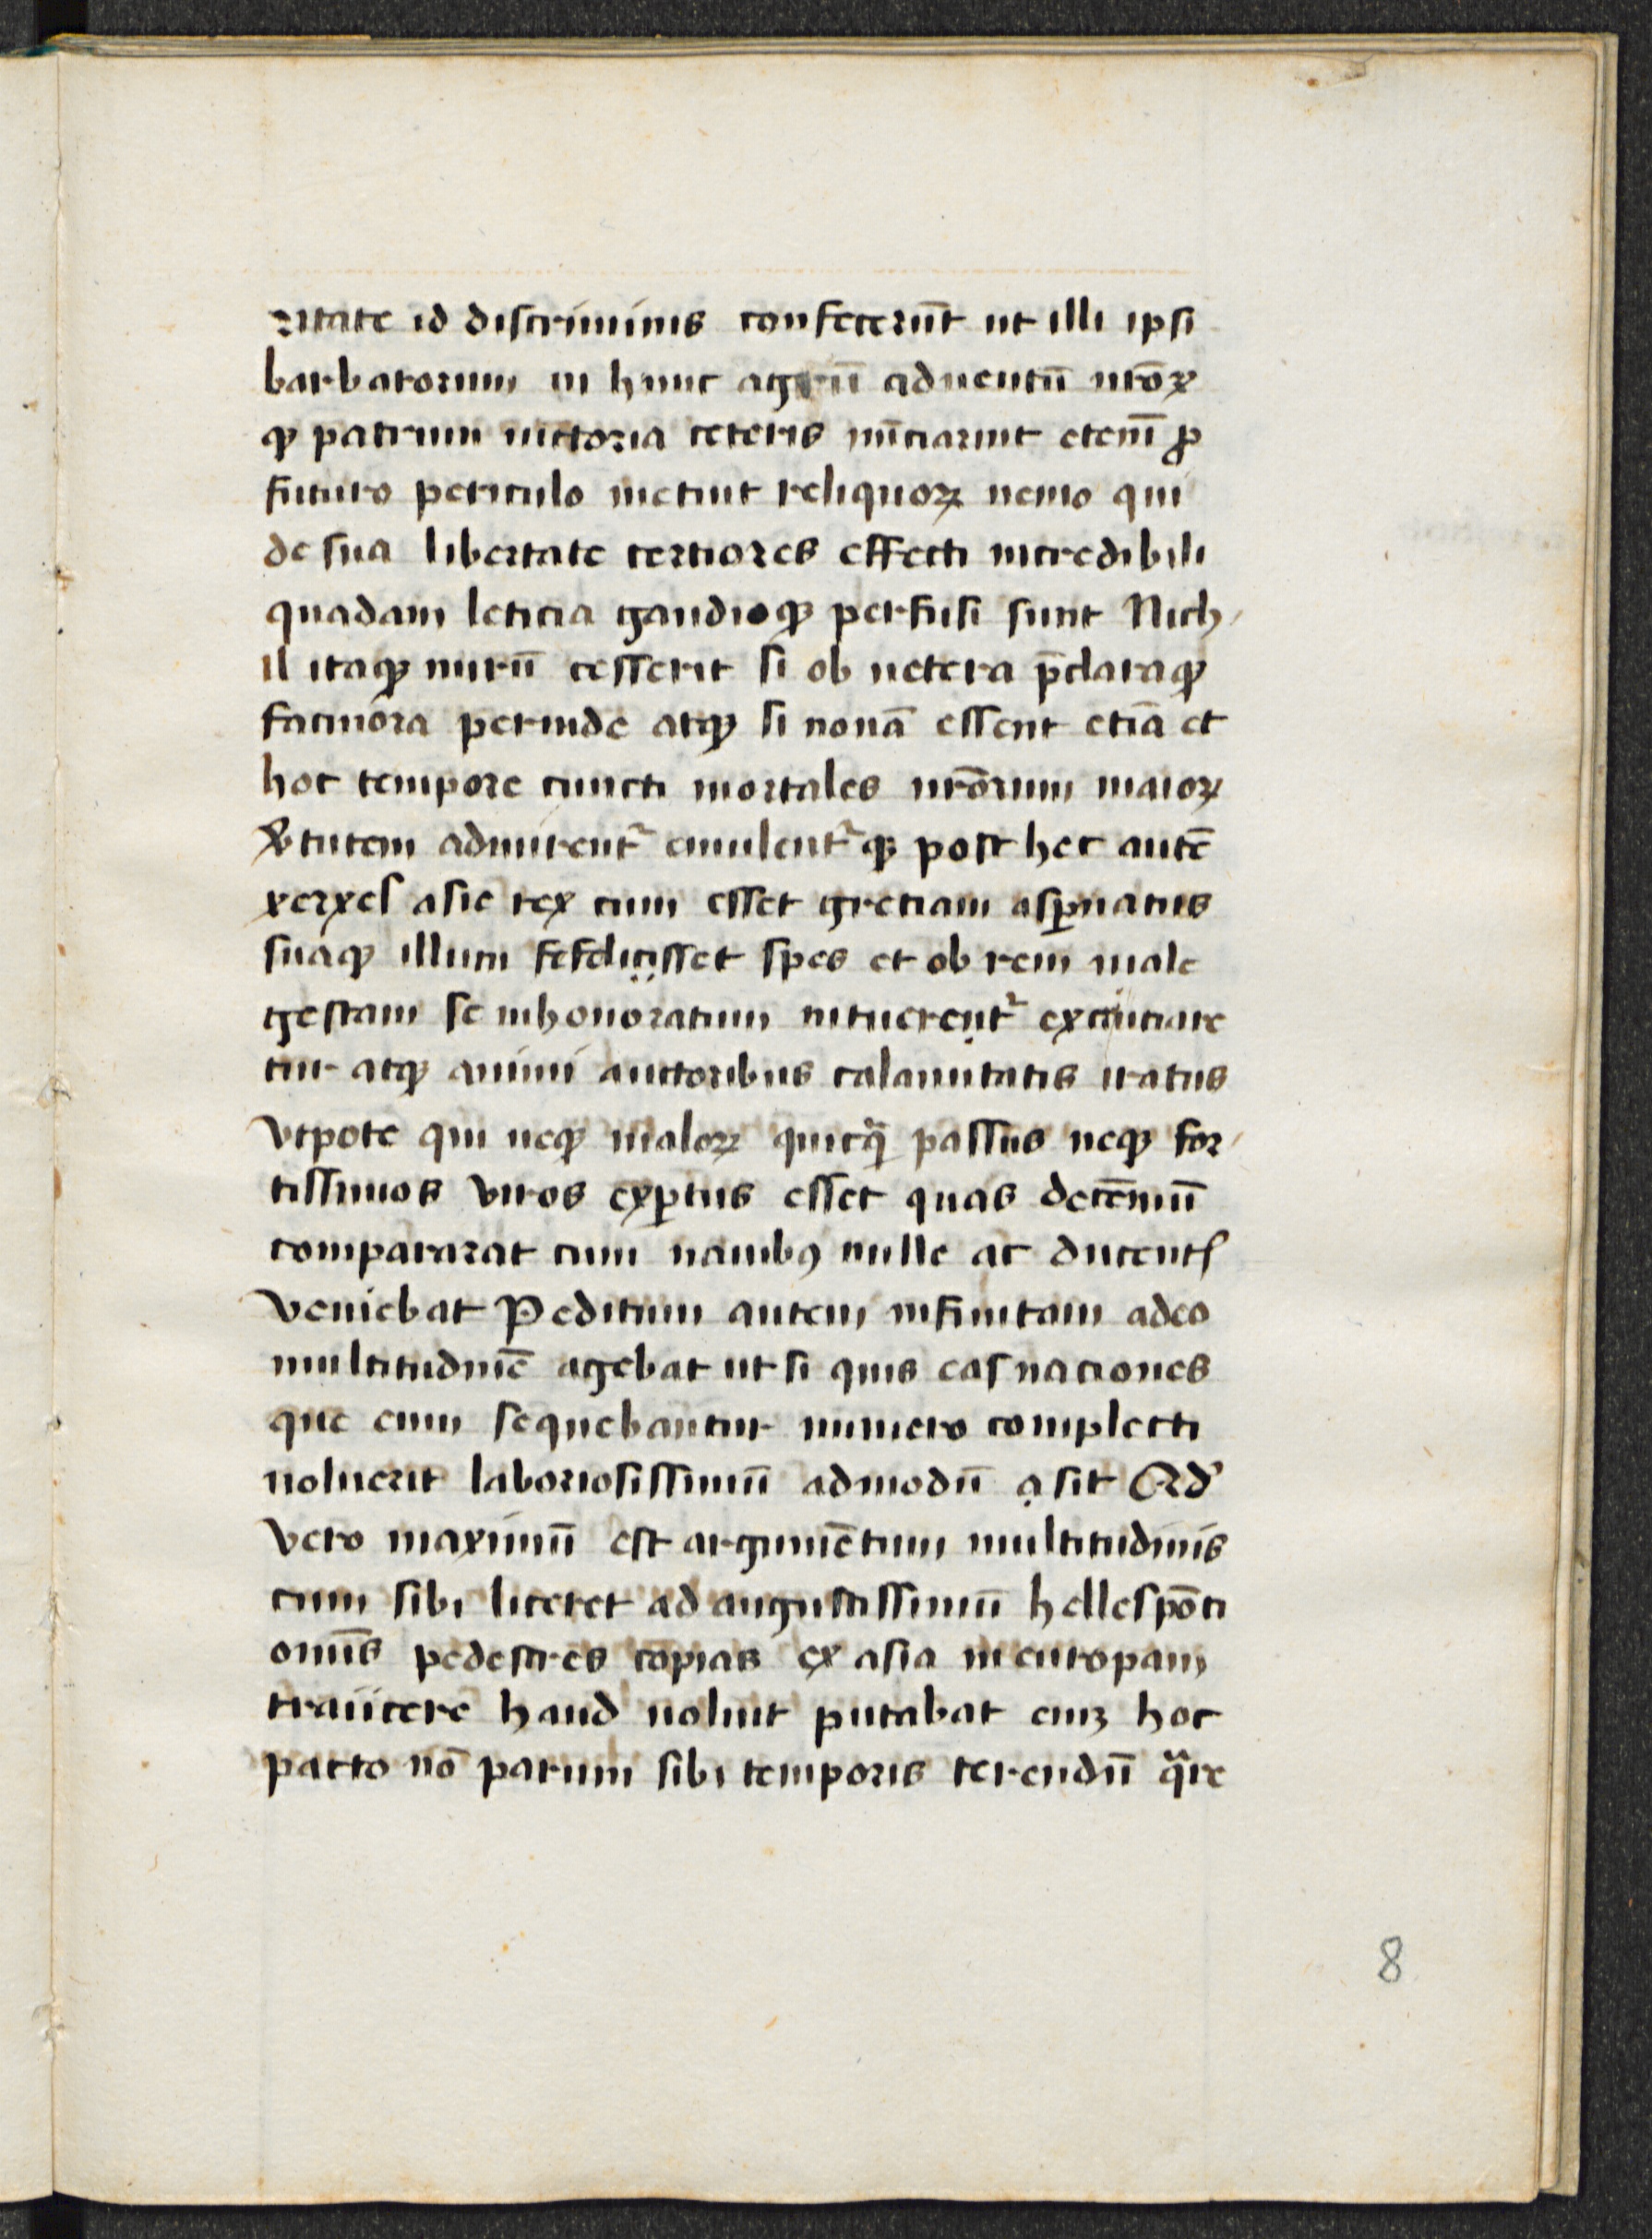 ritate id discriminis confecerūt ut illi ipsi
barbarorum in hunc agrū aduentū nr̄oꝝ
qꝫ patrum uictoria ceteris nūciarint etenī ꝓ
futuro periculo metuit reliquoꝝ nemo qui
de sua libertate certiores effecti incredibili
quadam leticia gaudioqꝫ perfusi sunt Nich-
il itaqꝫ mirū cesserit si ob uetera p̄claraqꝫ
facinora perinde atqꝫ si nouā essent etiā et
hoc tempore cuncti mortales nr̄orum maioꝝ
v̓tutem admirent᷑ emulent᷑qꝫ post hec autē
xerxes asie rex cum esset greciam aspernatus
suaqꝫ illum fefellisset spes et ob rem male
gestam se inhonoratum intuerent᷑ excruciare
tur atqꝫ animi auctoribus calamitatis iratus
vtpote qui neqꝫ maloꝝ quicqͣ passus neqꝫ for-
tissimos viros exꝑtus esset quas decēniū
compararat cum nauibꝰ mille ac ducentꝭ
veniebat Peditum autem infinitam adeo
multitudinē agebat ut si quis eas naciones
que eum sequebantur numero complecti
uoluerit laboriosissimū admodū a̩sit Qd̓
vero maximū est argumētum multitudinis
cum sibi liceret ad angustissimū hellespōti
om̄is pedestres copias ex asia in europam
traiicere haud uoluit putabat eniꝫ hoc
pacto nō parum sibi temporis terendū qͣre
8